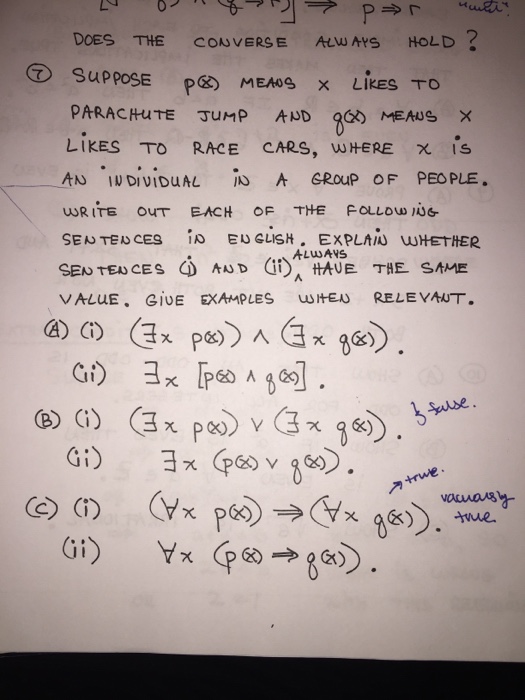 p ⇒ r
DOES THE CONVERSE ALWAYS HOLD ?
⑦ SUPPOSE p(x) MEANS x LIKES TO
PARACHUTE JUMP AND q(x) MEANS x
LIKES TO RACE CARS, WHERE x is
AN INDIVIDUAL IN A GROUP OF PEOPLE.
WRITE OUT EACH OF THE FOLLOWING
SENTENCES IN ENGLISH. EXPLAIN WHETHER
ALWAYS
SENTENCES (i) AND (ii) ^ HAVE THE SAME
VALUE. GIVE EXAMPLES WHEN RELEVANT.
(A) (i) (∃x p(x)) ∧ (∃x q(x)).
(ii) ∃x [p(x) ∧ q(x)].
(B) (i) (∃x p(x)) ∨ (∃x q(x)). false.
(ii) ∃x (p(x) ∨ q(x)).
true.
(C) (i) (∀x p(x)) ⇒ (∀x q(x)). vacuously
true
(ii) ∀x (p(x) ⇒ q(x)).